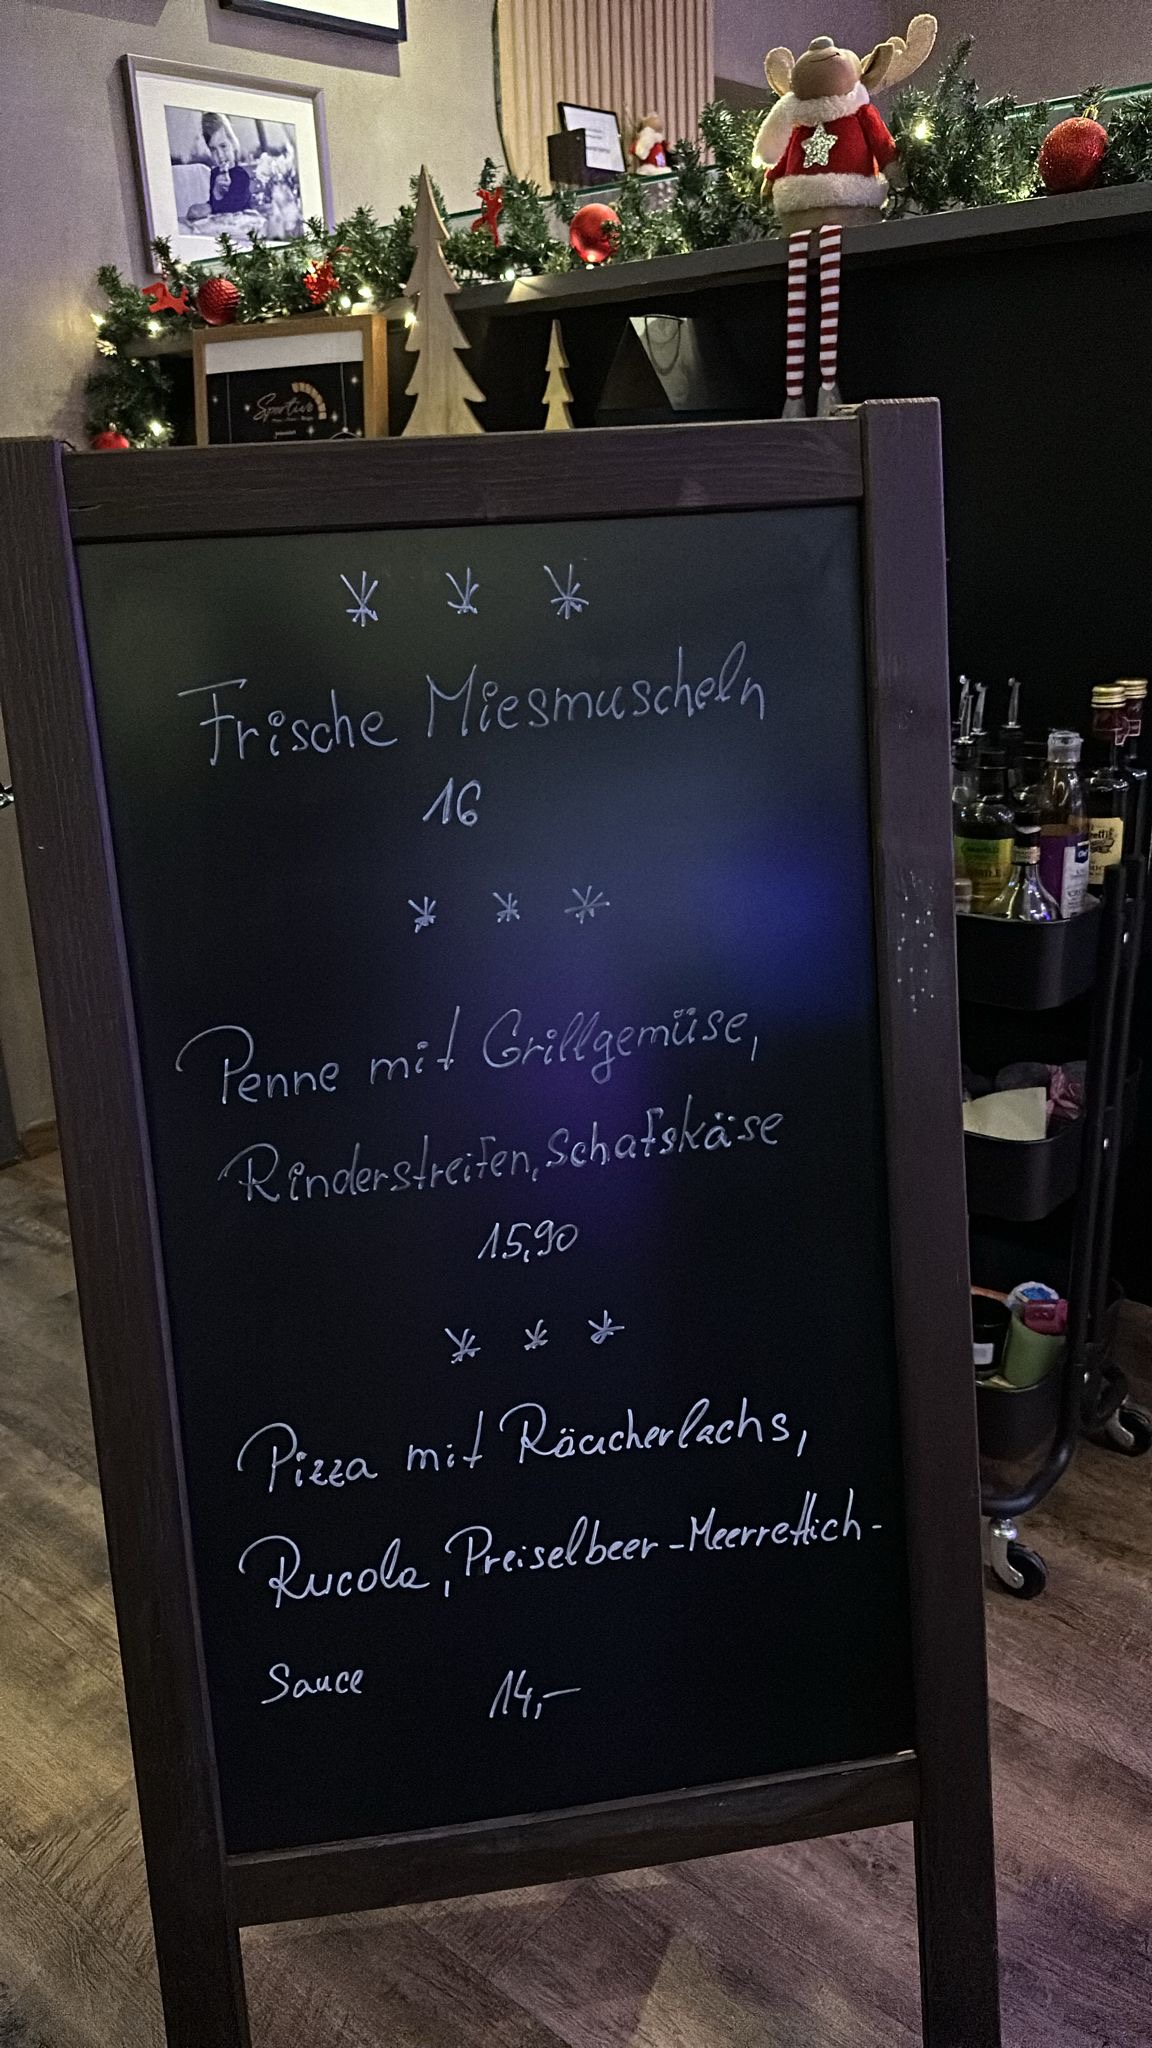 Sportivo
* * *
Frische Miesmuscheln
16
* * *
Penne mit Grillgemüse,
Rinderstreifen, Schafskäse
15,90
* * *
Pizza mit Räucherlachs,
Rucola, Preiselbeer-Meerrettich-
Sauce 14,-